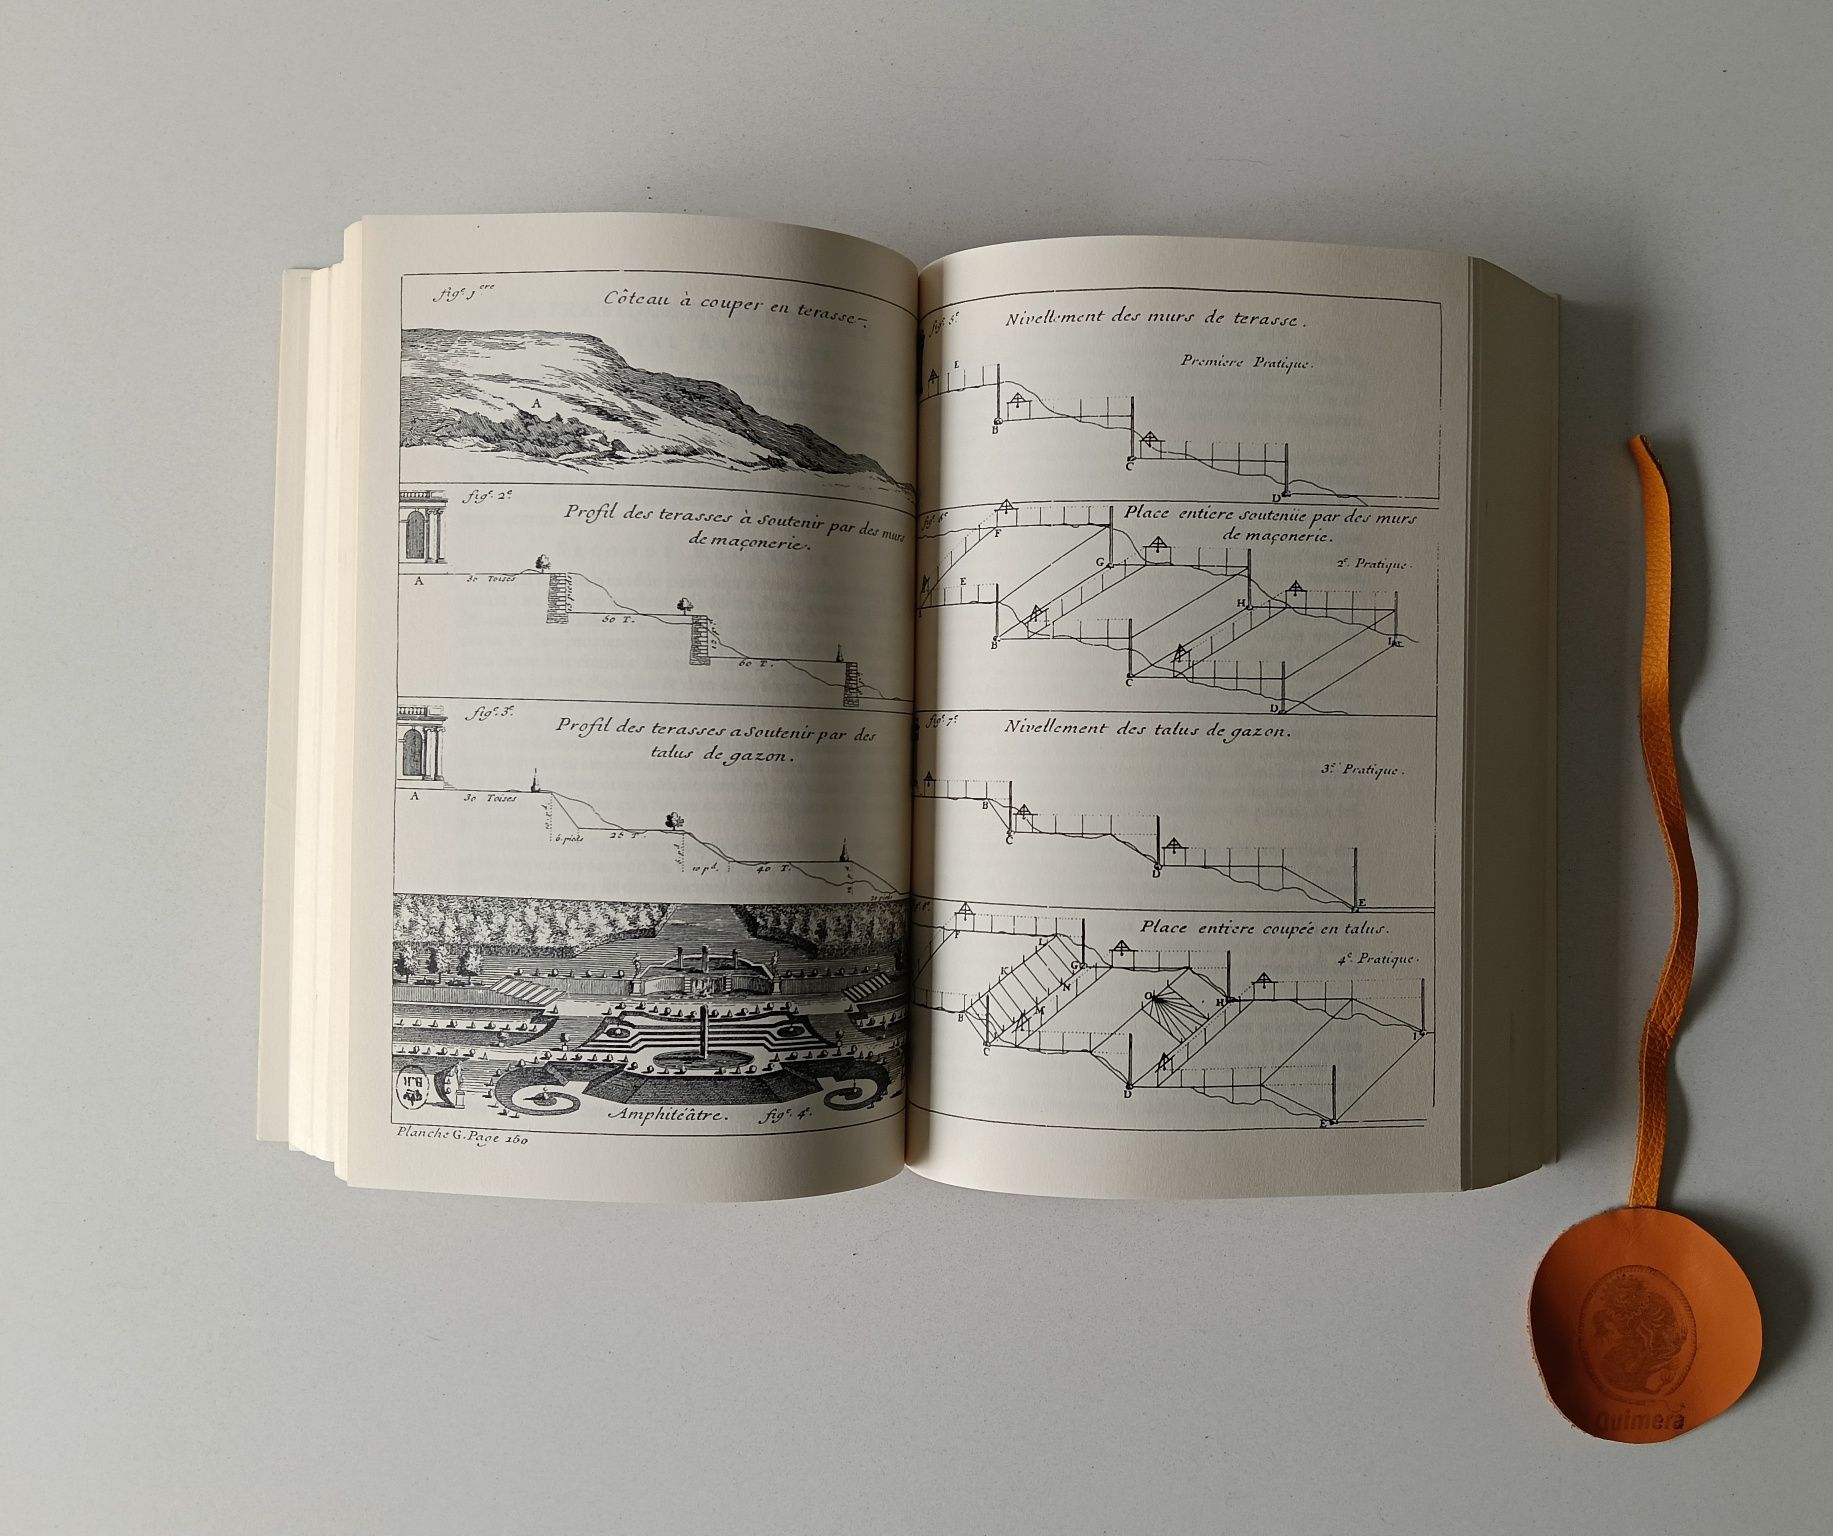 fig.e 1.ere
Côteau à couper en terasse.
A
fig.e 2.e
Profil des terasses à soutenir par des murs
de maçonerie.
A
30 Toises
15 pieds
50 T.
60 T.
fig.e 3.e
Profil des terasses a soutenir par des
talus de gazon.
A
30 Toises
6 pieds
25 T.
10 p.d
40 T.
20 pieds
Amphiteâtre.
fig.e 4.e
B.R
Planche G. Page 160
fig.e 5.e
Nivellement des murs de terasse.
Premiere Pratique.
E
B
C
D
fig.e 6.e
Place entiere soutenüe par des murs
de maçonerie.
2.e Pratique.
F
G
E
H
B
C
D
fig.e 7.e
Nivellement des talus de gazon.
3.e Pratique.
B
C
D
E
Place entiere coupée en talus.
4.e Pratique.
F
L
K
G
N
O
H
B
M
C
I
D
E
Quimera